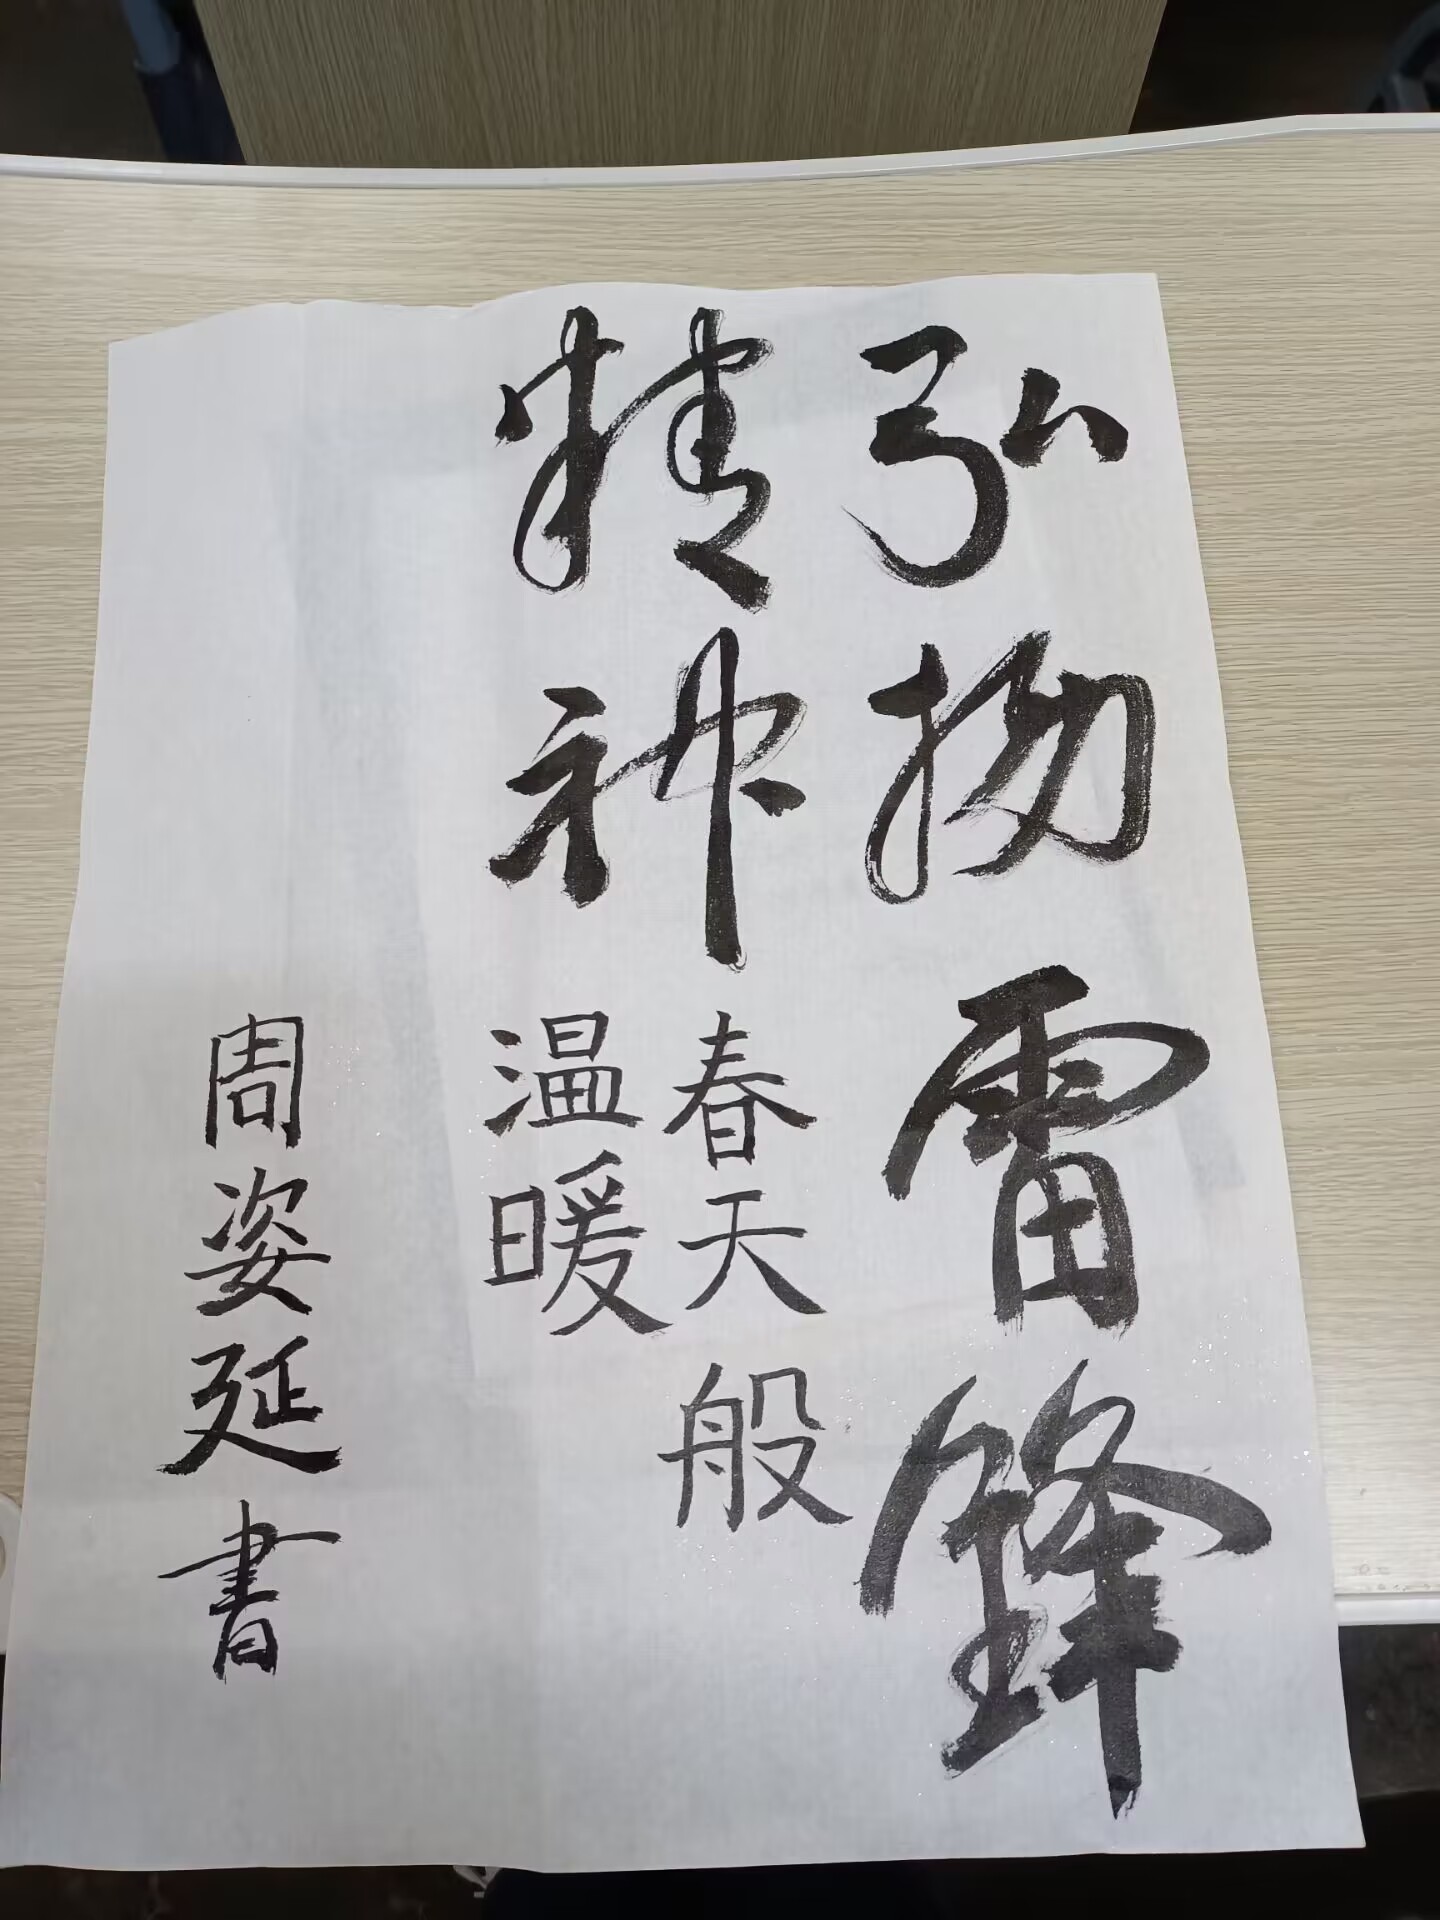 弘扬雷锋
精神
春天般
温暖
周姿延書